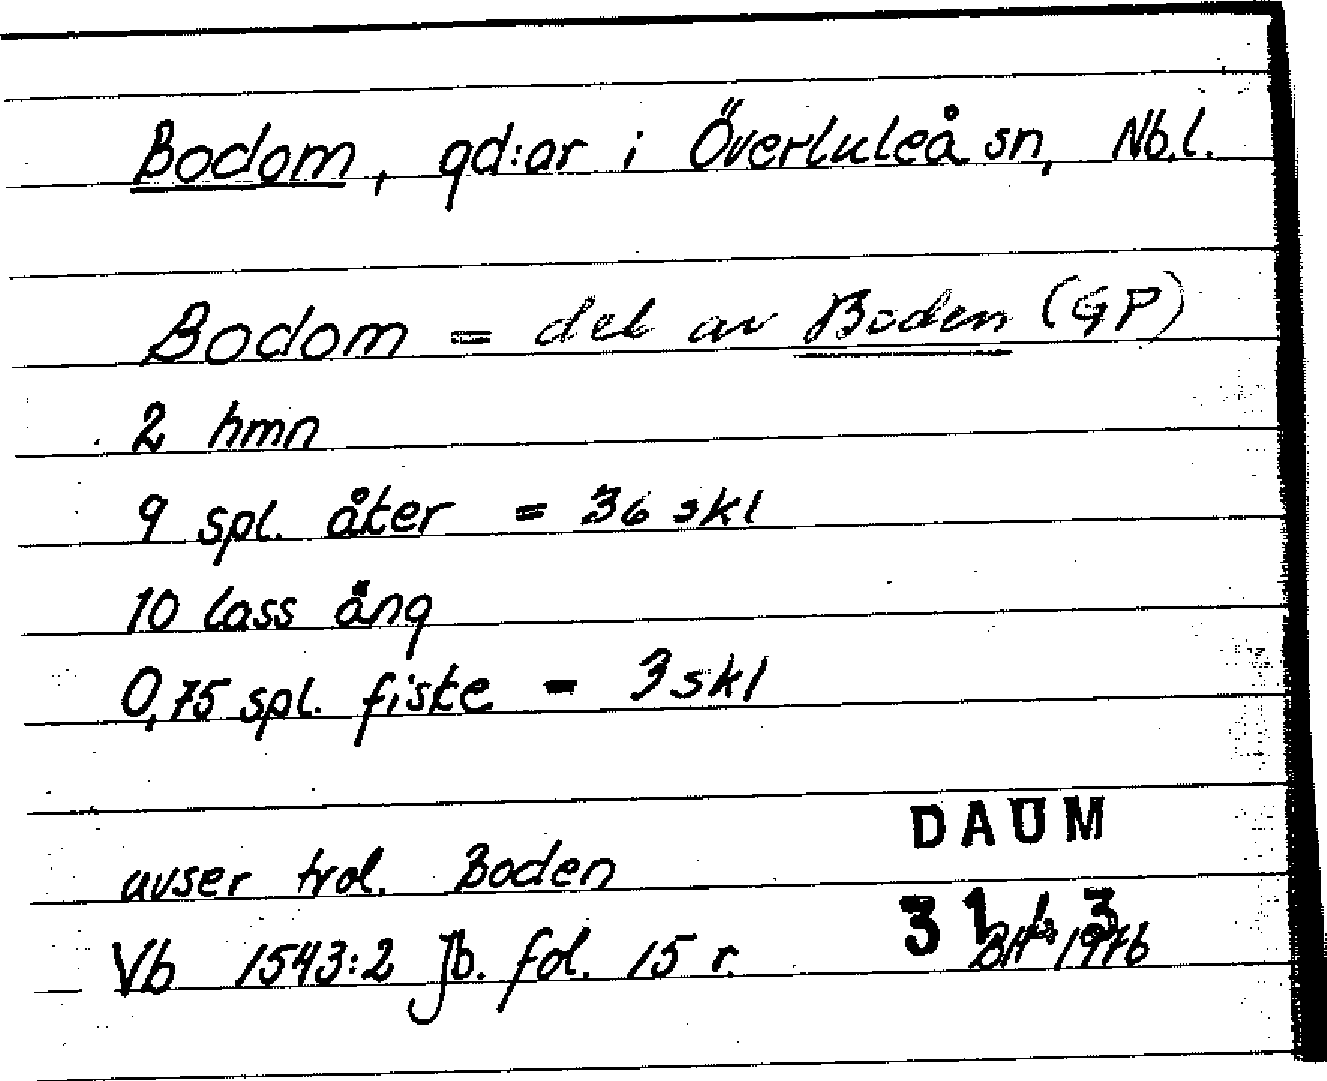 Bodom, gd:ar i Överluleå sn, Nb.l.
Bodom = del av Boden (GP)
2 hmn
9 spl. åker = 36 skl
10 lass äng
0,75 spl. fiske = 3 skl
avser trol. Boden
DAUM
Vb 1543:2 Jb. fol. 15 r.